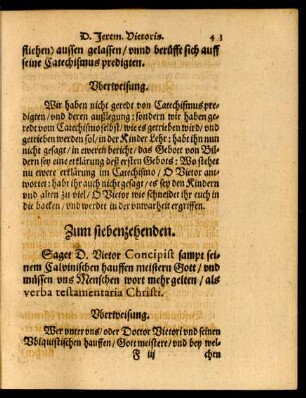 D. Jerem. Victoris. 43
fliehen) aussen gelassen / vnnd berüfft sich auff
seine Catechismus predigten.
Vberweisung.
Wir haben nicht geredt von Catechismus pre-
digten / vnd deren außlegung: sondern wir haben ge-
redt vom Catechismo selbst / wie es getrieben wird / vnd
getrieben werden sol / in der Kinder Lehr: habt ihn nun
nicht gesagt / in ewrem bericht / das Gebott von Bil-
dern sey eine erklärung deß ersten Gebots: Wo stehet
nu ewere erklärung im Catechismo / O Victor ant-
wortet: habt ihr auch nicht gesagt / es sey den Kindern
vnd alten zu viel / O Victor wie schneidet ihr euch in
die backen / vnd werdet in der vnwarheit ergriffen.
Zum siebenzehenden.
Saget D. Victor Concipist sampt sei-
nem Calvinischen hauffen meistern Gott / vnd
müssen vns Menschen wort mehr gelten / als
verba testamentaria Christi.
Vberweisung.
Wer vnter vns / oder Doctor Victori vnd seinen
Vbiquistischen hauffen / Gott meistere / vnd bey wel-
F iij chen